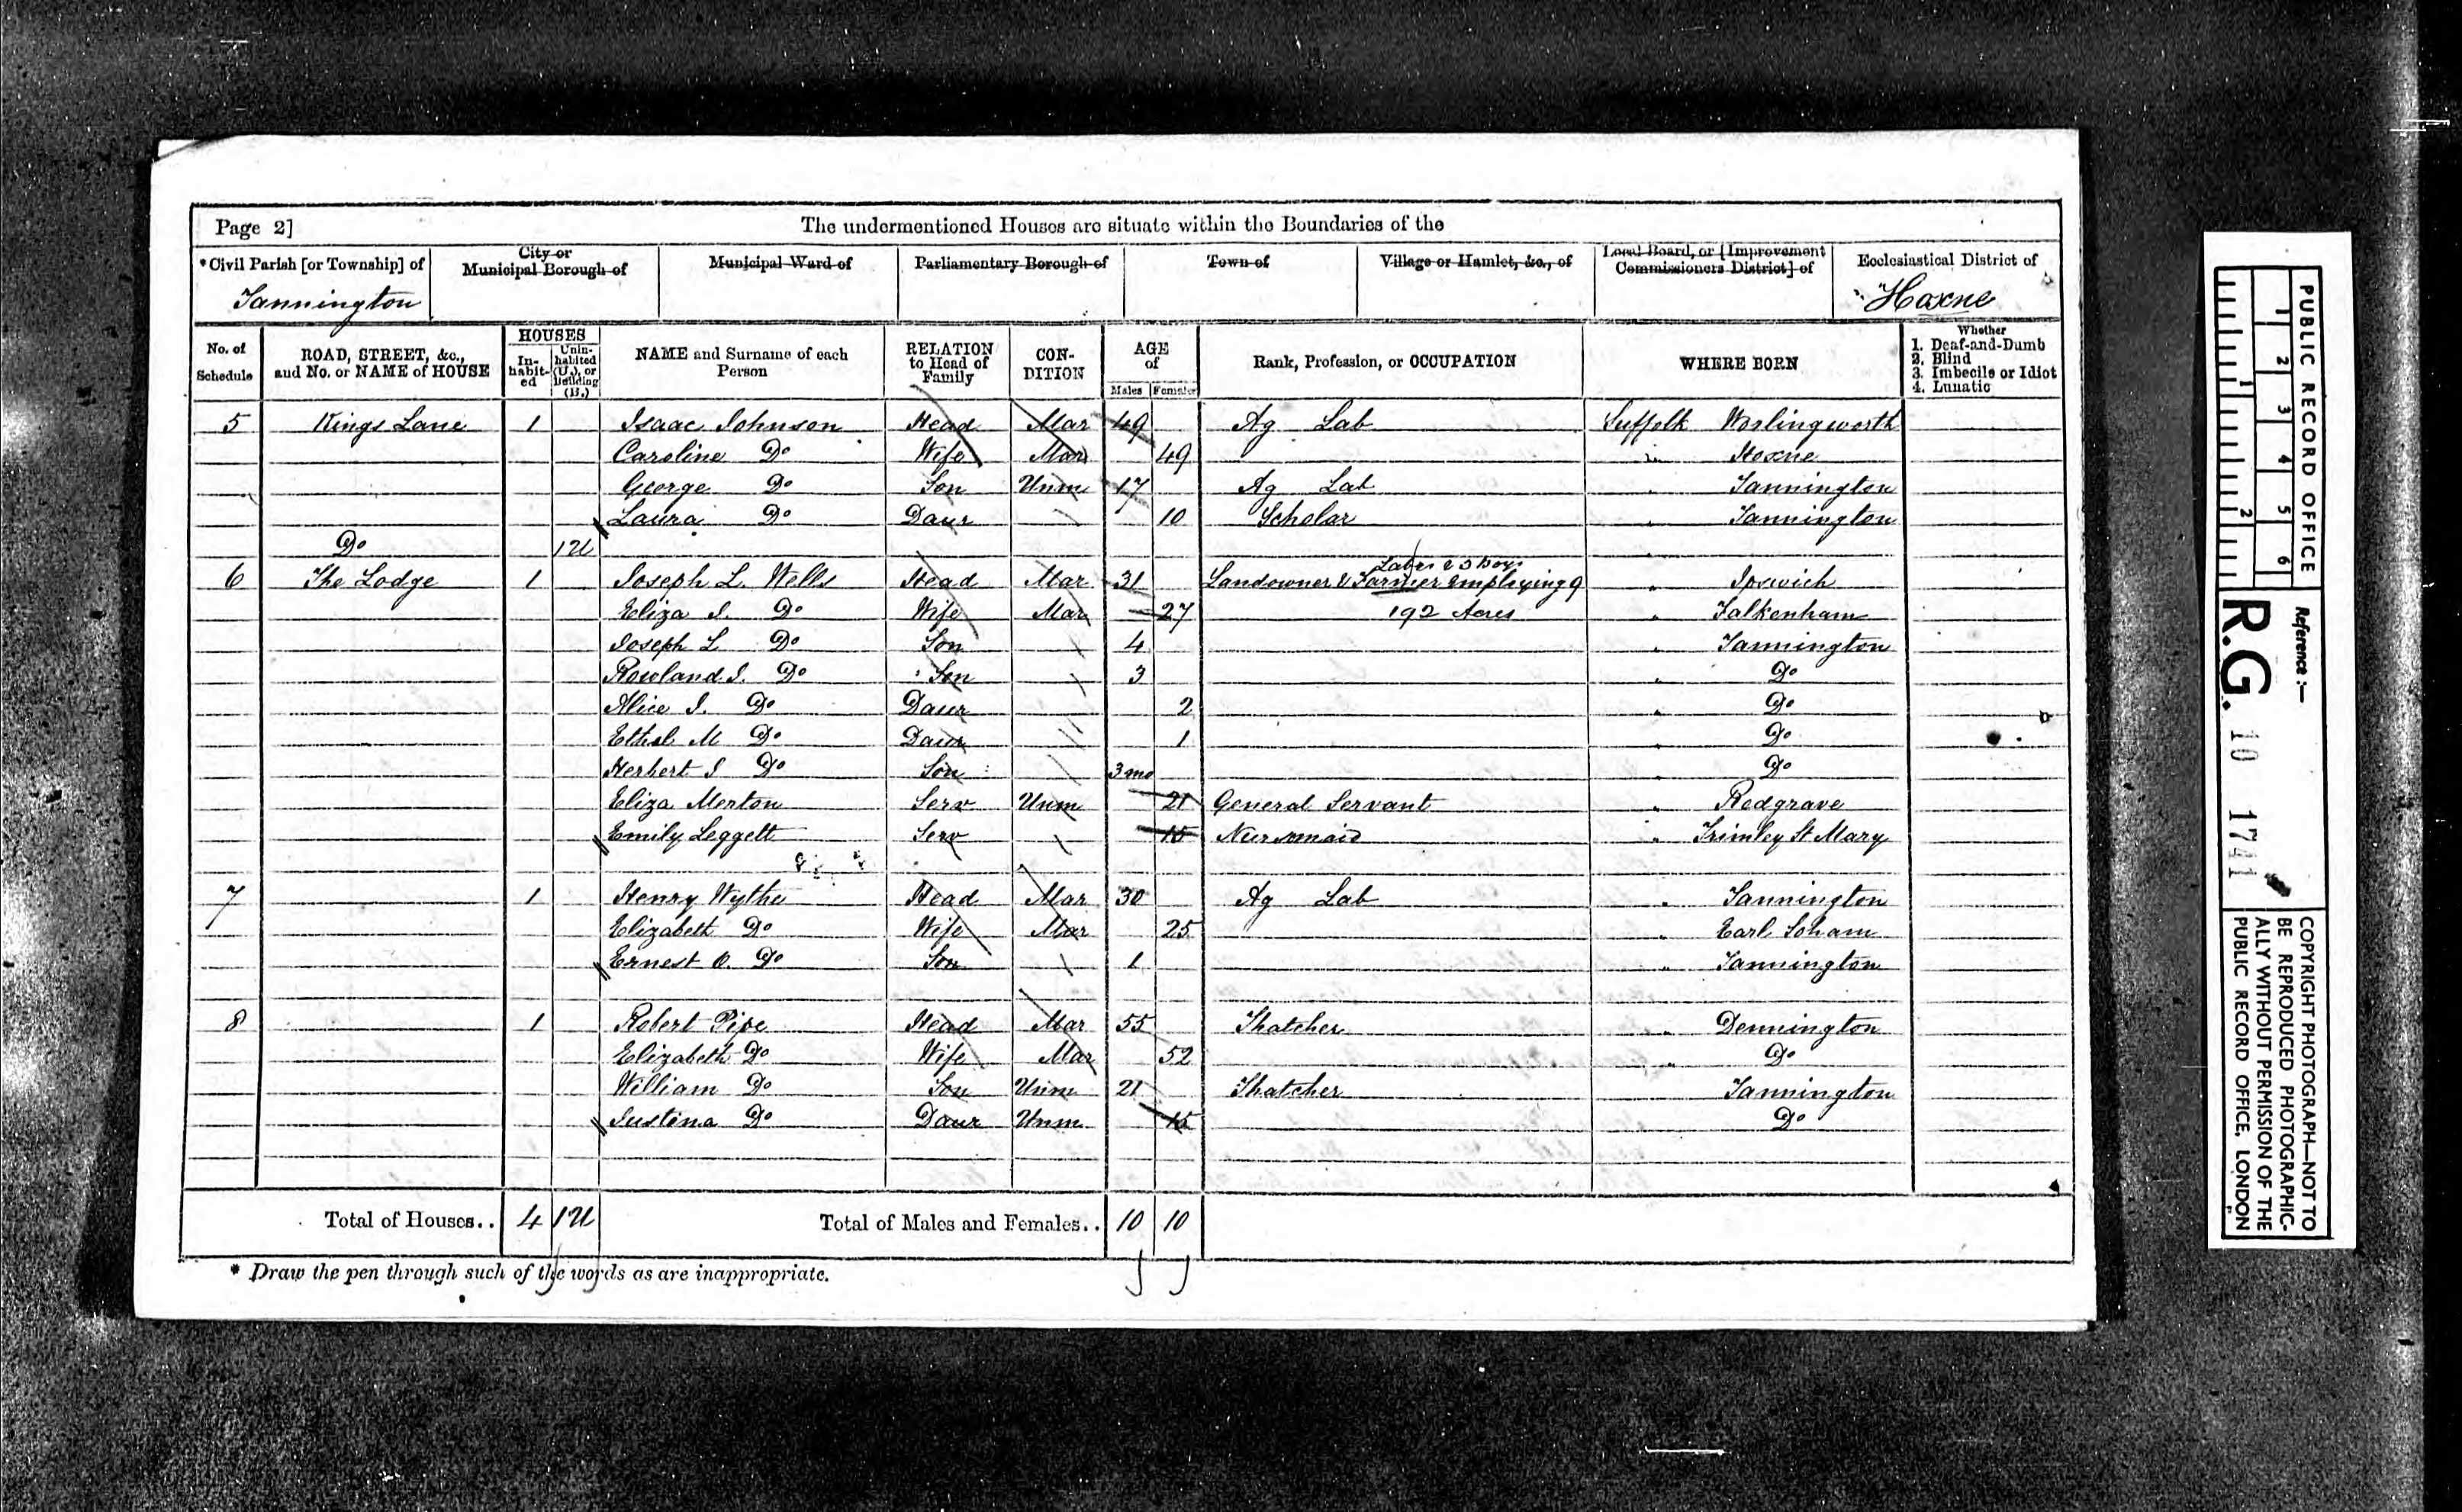 Page 2] The undermentioned Houses are situate within the Boundaries of the
*Civil Parish [or Township] of City or Municipal Borough of Municipal Ward of Parliamentary Borough of Town of Village or Hamlet, &c., of Local Board, or [Improvement Commissioners District] of Ecclesiastical District of
Tannington Hoxne
No. of Schedule ROAD, STREET, &c., and No. or NAME of HOUSE HOUSES Inhabited Uninhabited (U.), or Building (B.) NAME and Surname of each Person RELATION to Head of Family CONDITION AGE of Males Females Rank, Profession, or OCCUPATION WHERE BORN Whether 1. Deaf-and-Dumb 2. Blind 3. Imbecile or Idiot 4. Lunatic
5 Kings Lane 1 Isaac Johnson Head Mar 49 Ag Lab Suffolk Worlingworth
Caroline Do Wife Mar 49 " Hoxne
George Do Son Unm 17 Ag Lab " Tannington
Laura Do Daur 10 Scholar " Tannington
Do 1U
Labrs & 3 Boys
6 The Lodge 1 Joseph L. Wells Head Mar 31 Landowner & Farmer employing 9 " Ipswich
Eliza J. Do Wife Mar 27 192 Acres " Falkenham
Joseph L Do Son 4 " Tannington
Rowland J. Do Son 3 " Do
Alice J. Do Daur 2 " Do
Ethel M Do Daur 1 " Do
Herbert J Do Son 3 mo " Do
Eliza Merton Serv Unm 21 General Servant " Redgrave
Emily Leggett Serv 15 Nursmaid " Trimley St Mary
7 1 Henry Wythe Head Mar 30 Ag Lab " Tannington
Elizabeth Do Wife Mar 25 " Earl Soham
Ernest O. Do Son 1 " Tannington
8 1 Robert Pipe Head Mar 55 Thatcher " Dennington
Elizabeth Do Wife Mar 52 " Do
William Do Son Unm 21 Thatcher Tannington
Justina Do Daur Unm 15 Do
Total of Houses.. 4 1U Total of Males and Females.. 10 10
* Draw the pen through such of the words as are inappropriate.
PUBLIC RECORD OFFICE
1 2 3 4 5 6
1 2
Reference :—
R.G. 10 1741
COPYRIGHT PHOTOGRAPH—NOT TO
BE REPRODUCED PHOTOGRAPHIC-
ALLY WITHOUT PERMISSION OF THE
PUBLIC RECORD OFFICE, LONDON